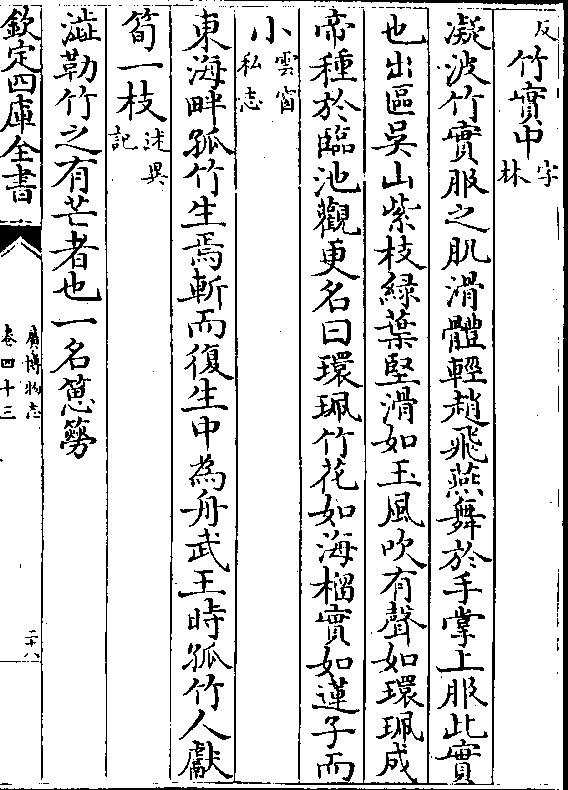 反竹實中字林
凝波竹實服之肌滑體輕趙飛燕舞於手掌上服此實
也出區吳山紫枝綠葉堅滑如玉風吹有聲如環珮咸
帝種於臨池觀更名曰環珮竹花如海榴實如蓮子而
小雲窗私志
東海畔孤竹生焉斬而復生中為舟武王時孤竹人獻
筍一枝述異記
澁勒竹之有芒者也一名箽簩
欽定四庫全書
廣博物志
卷四十三
二十八